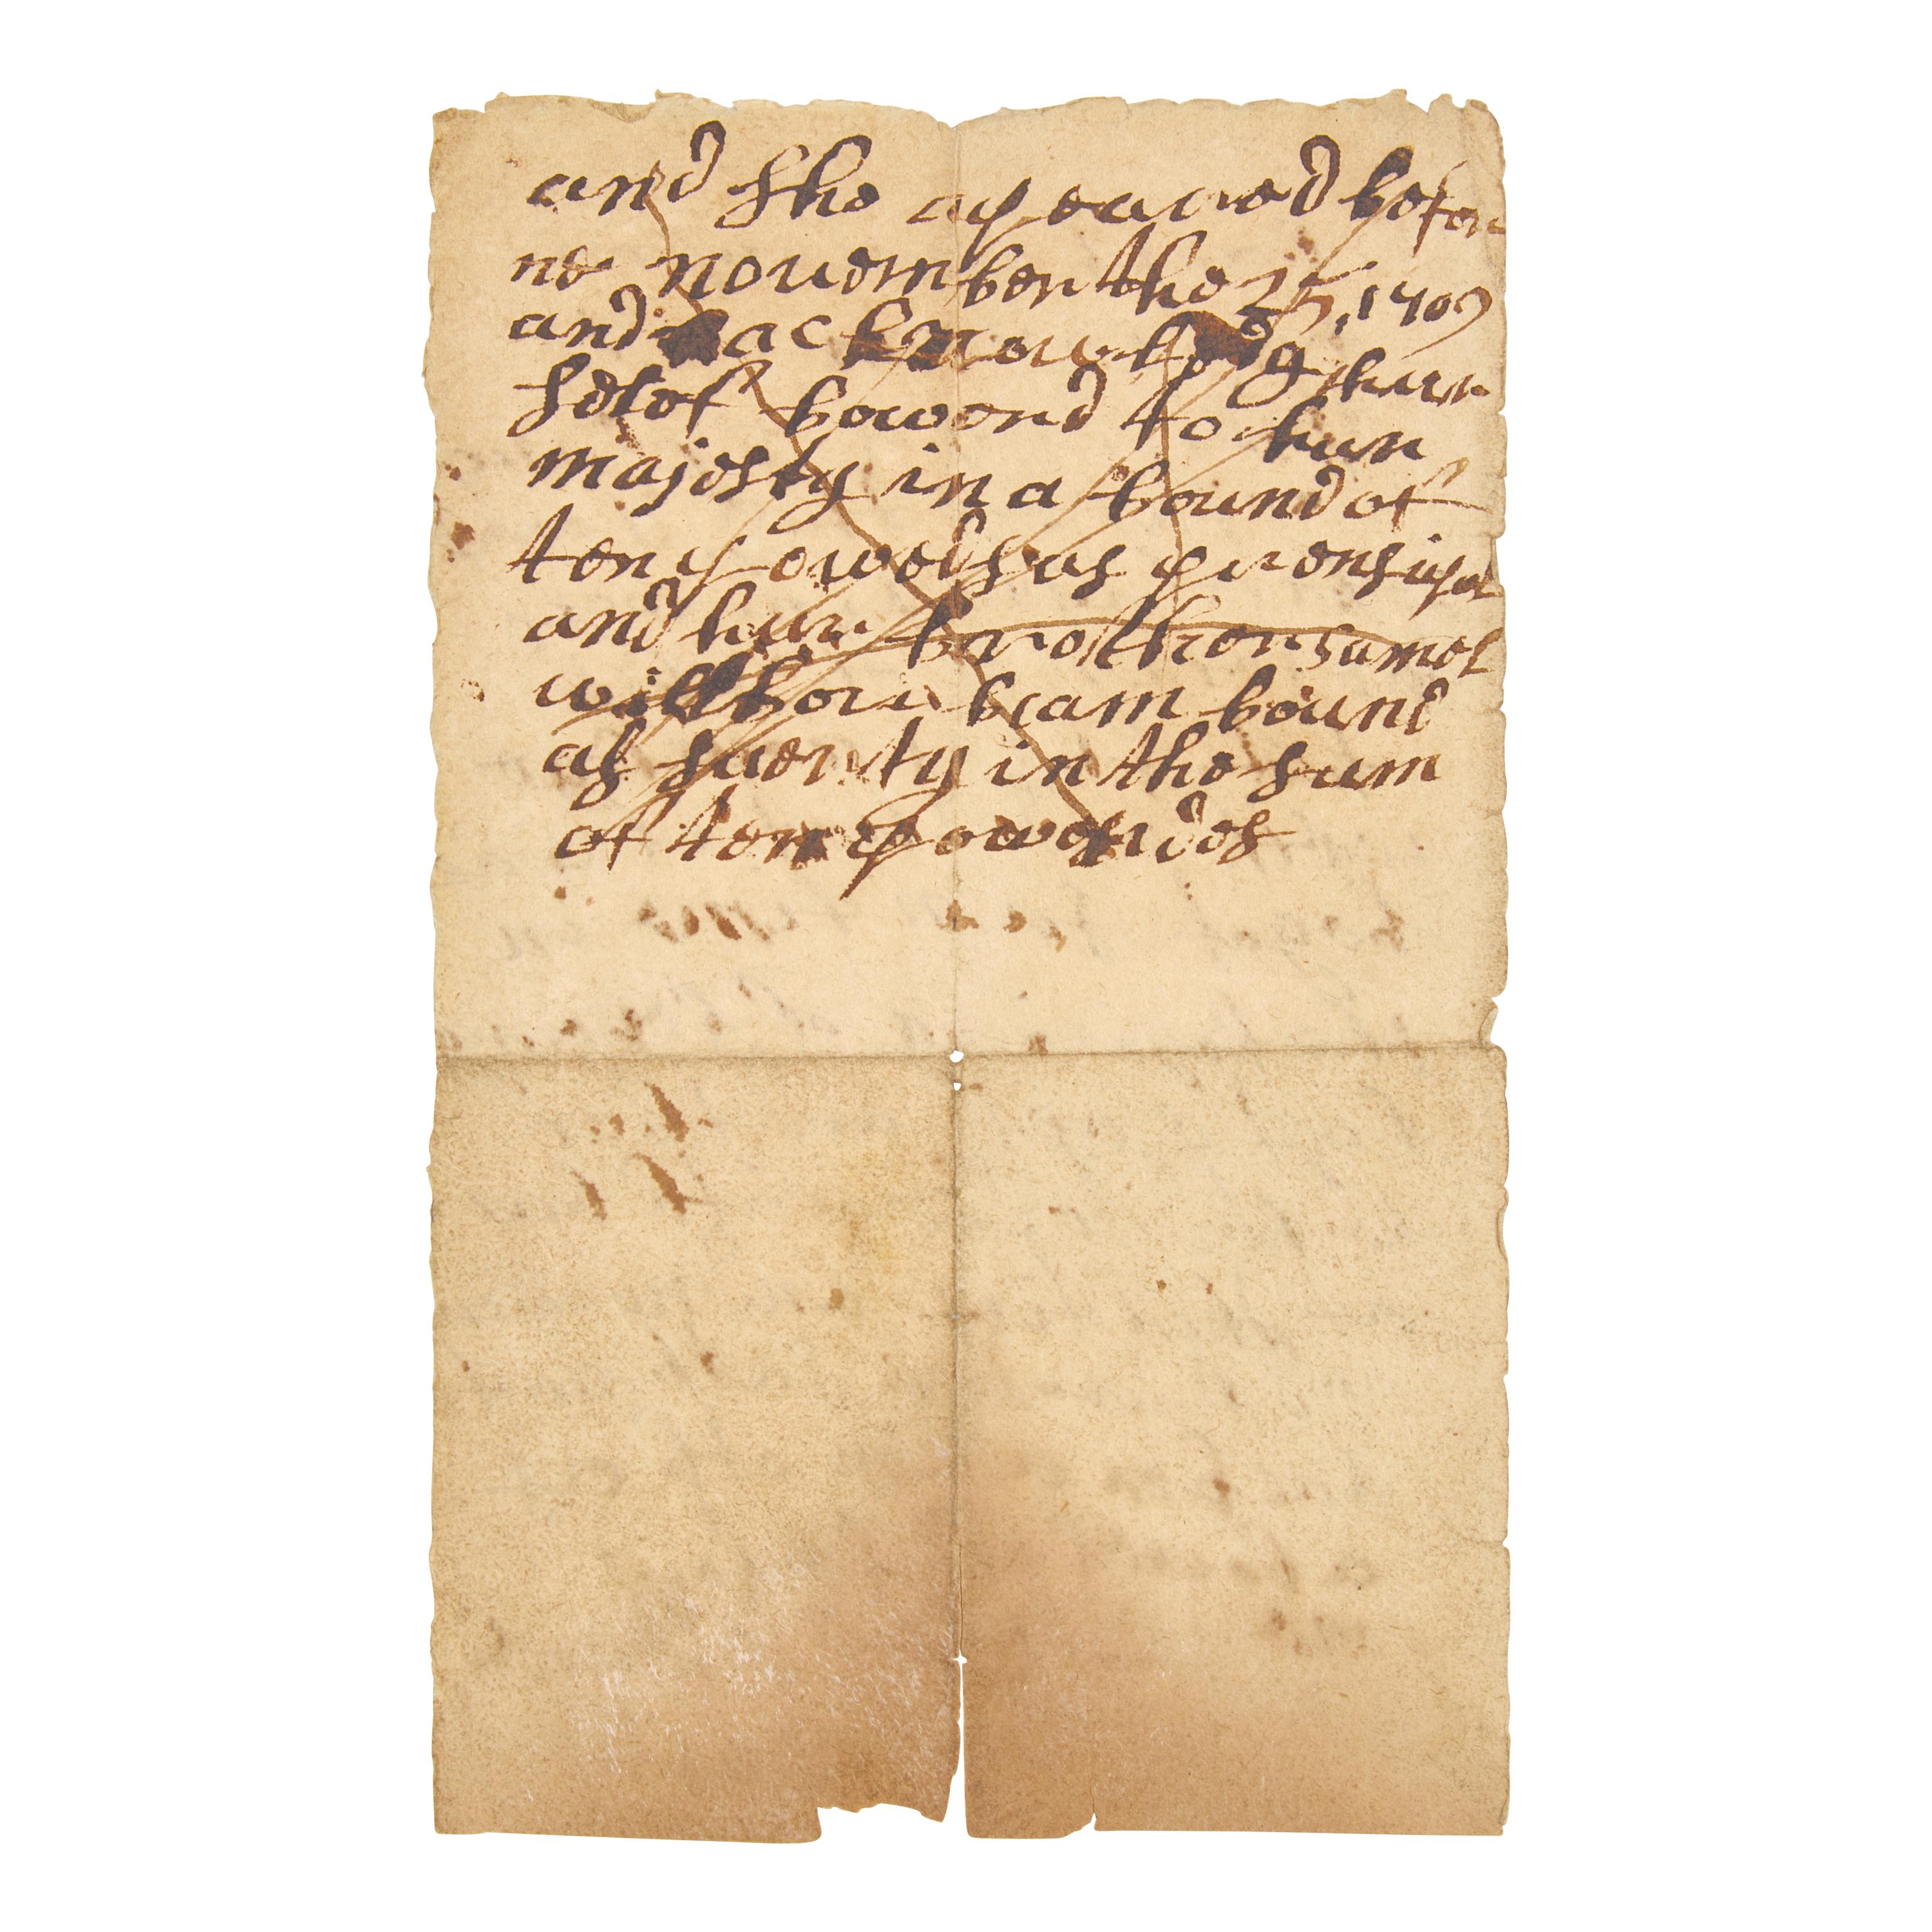 and she apeared before
me november the 25, 1709
and acknowledg hur
selef bowend to hur
majesty in a bound of
ten powends as prensipel
and hur brother samel
bcam bound
as suerty in the sum
of ten powendes